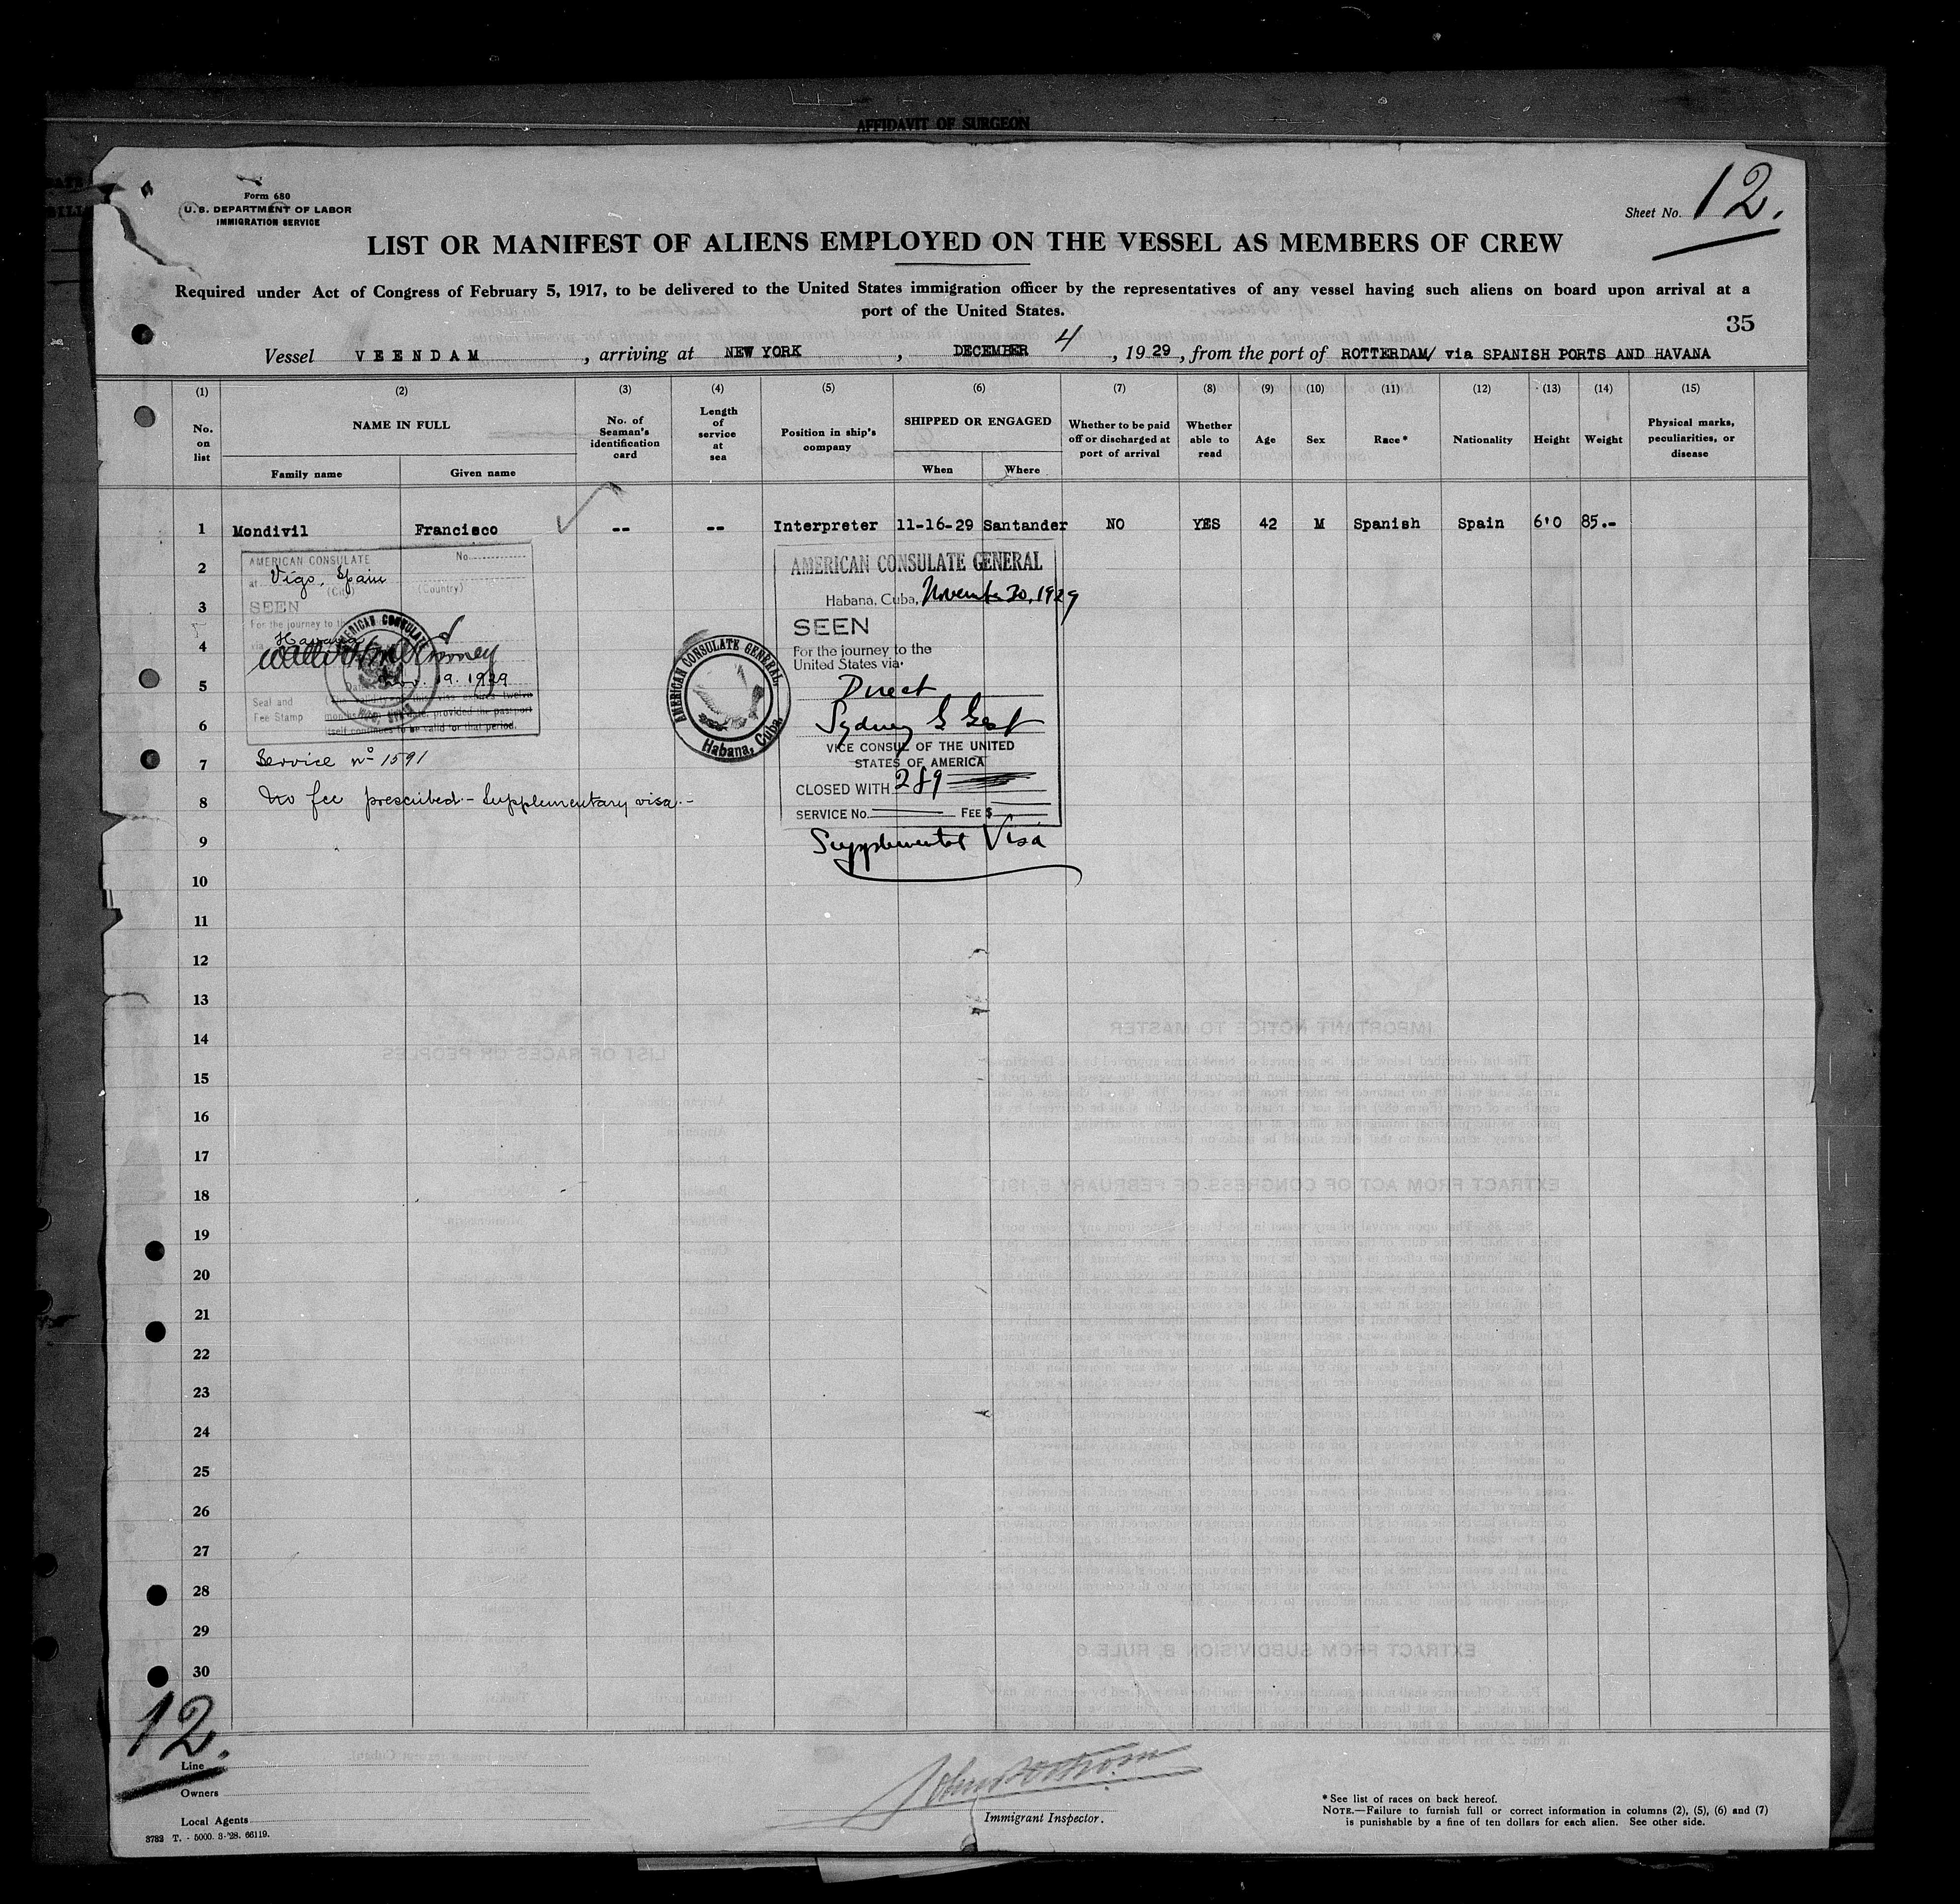 AFFIDAVIT OF SURGEON
Form 680
U. S. DEPARTMENT OF LABOR
IMMIGRATION SERVICE
Sheet No. 12.
LIST OR MANIFEST OF ALIENS EMPLOYED ON THE VESSEL AS MEMBERS OF CREW
Required under Act of Congress of February 5, 1917, to be delivered to the United States immigration officer by the representatives of any vessel having such aliens on board upon arrival at a
port of the United States.
35
Vessel VEENDAM, arriving at NEW YORK, DECEMBER 4, 1929, from the port of ROTTERDAM/ via SPANISH PORTS AND HAVANA
(1) (2) (3) (4) (5) (6) (7) (8) (9) (10) (11) (12) (13) (14) (15)
No. on list
NAME IN FULL
Family name
Given name
No. of Seaman's identification card
Length of service at sea
Position in ship's company
SHIPPED OR ENGAGED
When
Where
Whether to be paid off or discharged at port of arrival
Whether able to read
Age
Sex
Race*
Nationality
Height
Weight
Physical marks, peculiarities, or disease
1 Mondivil Francisco -- -- Interpreter 11-16-29 Santander NO YES 42 M Spanish Spain 6'0 85.-
2
3
4
5
6
7
8
9
10
11
12
13
14
15
16
17
18
19
20
21
22
23
24
25
26
27
28
29
30
AMERICAN CONSULATE No.
at Vigo, Spain
(City) (Country)
SEEN
For the journey to the
via Havana
Nov. 19. 1929
Seal and
Fee Stamp
The validity of this visa expires twelve
months from date, provided the passport
itself continues to be valid for that period.
AMERICAN CONSULATE
Service nº 1591
No fee prescribed.- Supplementary visa.-
AMERICAN CONSULATE GENERAL
Habana, Cuba, November 30, 1929
SEEN
For the journey to the
United States via
Direct
Sydney G Gest
VICE CONSUL OF THE UNITED
STATES OF AMERICA
CLOSED WITH 289
SERVICE No. FEE $
Supplemental Visa
AMERICAN CONSULATE GENERAL,
Habana, Cuba.
12.
Line
Owners
Local Agents
3782 T. - 5000. 3-'28. 66119.
Immigrant Inspector.
*See list of races on back hereof.
NOTE.—Failure to furnish full or correct information in columns (2), (5), (6) and (7)
is punishable by a fine of ten dollars for each alien. See other side.